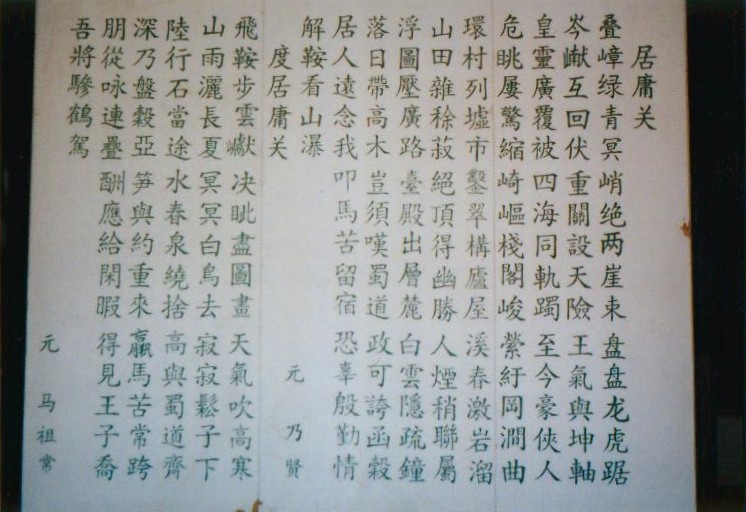 居庸关
叠嶂绿青冥 峭绝两崖束 盘盘龙虎踞
岑巘互回伏 重關設天險 王氣與坤軸
皇靈廣覆被 四海同軌躅 至今豪俠人
危眺屢驚縮 崎嶇棧閣峻 縈紆岡澗曲
環村列墟市 鑿翠構廬屋 溪春激岩溜
山田雜稌菽 絕頂得幽勝 人煙稍聯屬
浮圖壓廣路 臺殿出層麓 白雲隱疏鐘
落日帶高木 豈須嘆蜀道 政可誇函穀
居人遠念我 叩馬苦留宿 恐辜殷勤情
解鞍看山瀑
元 乃賢
度居庸关
飛鞍步雲巘 决眦盡圖畫 天氣吹高寒
山雨灑長夏 冥冥白鳥去 寂寂鬆子下
陸行石當途 水春泉繞捨 高與蜀道齊
深乃盤穀亞 笋與約重來 羸馬苦常跨
朋從咏連疊 酬應給閑暇 得見王子喬
吾將驂鶴駕
元 马祖常